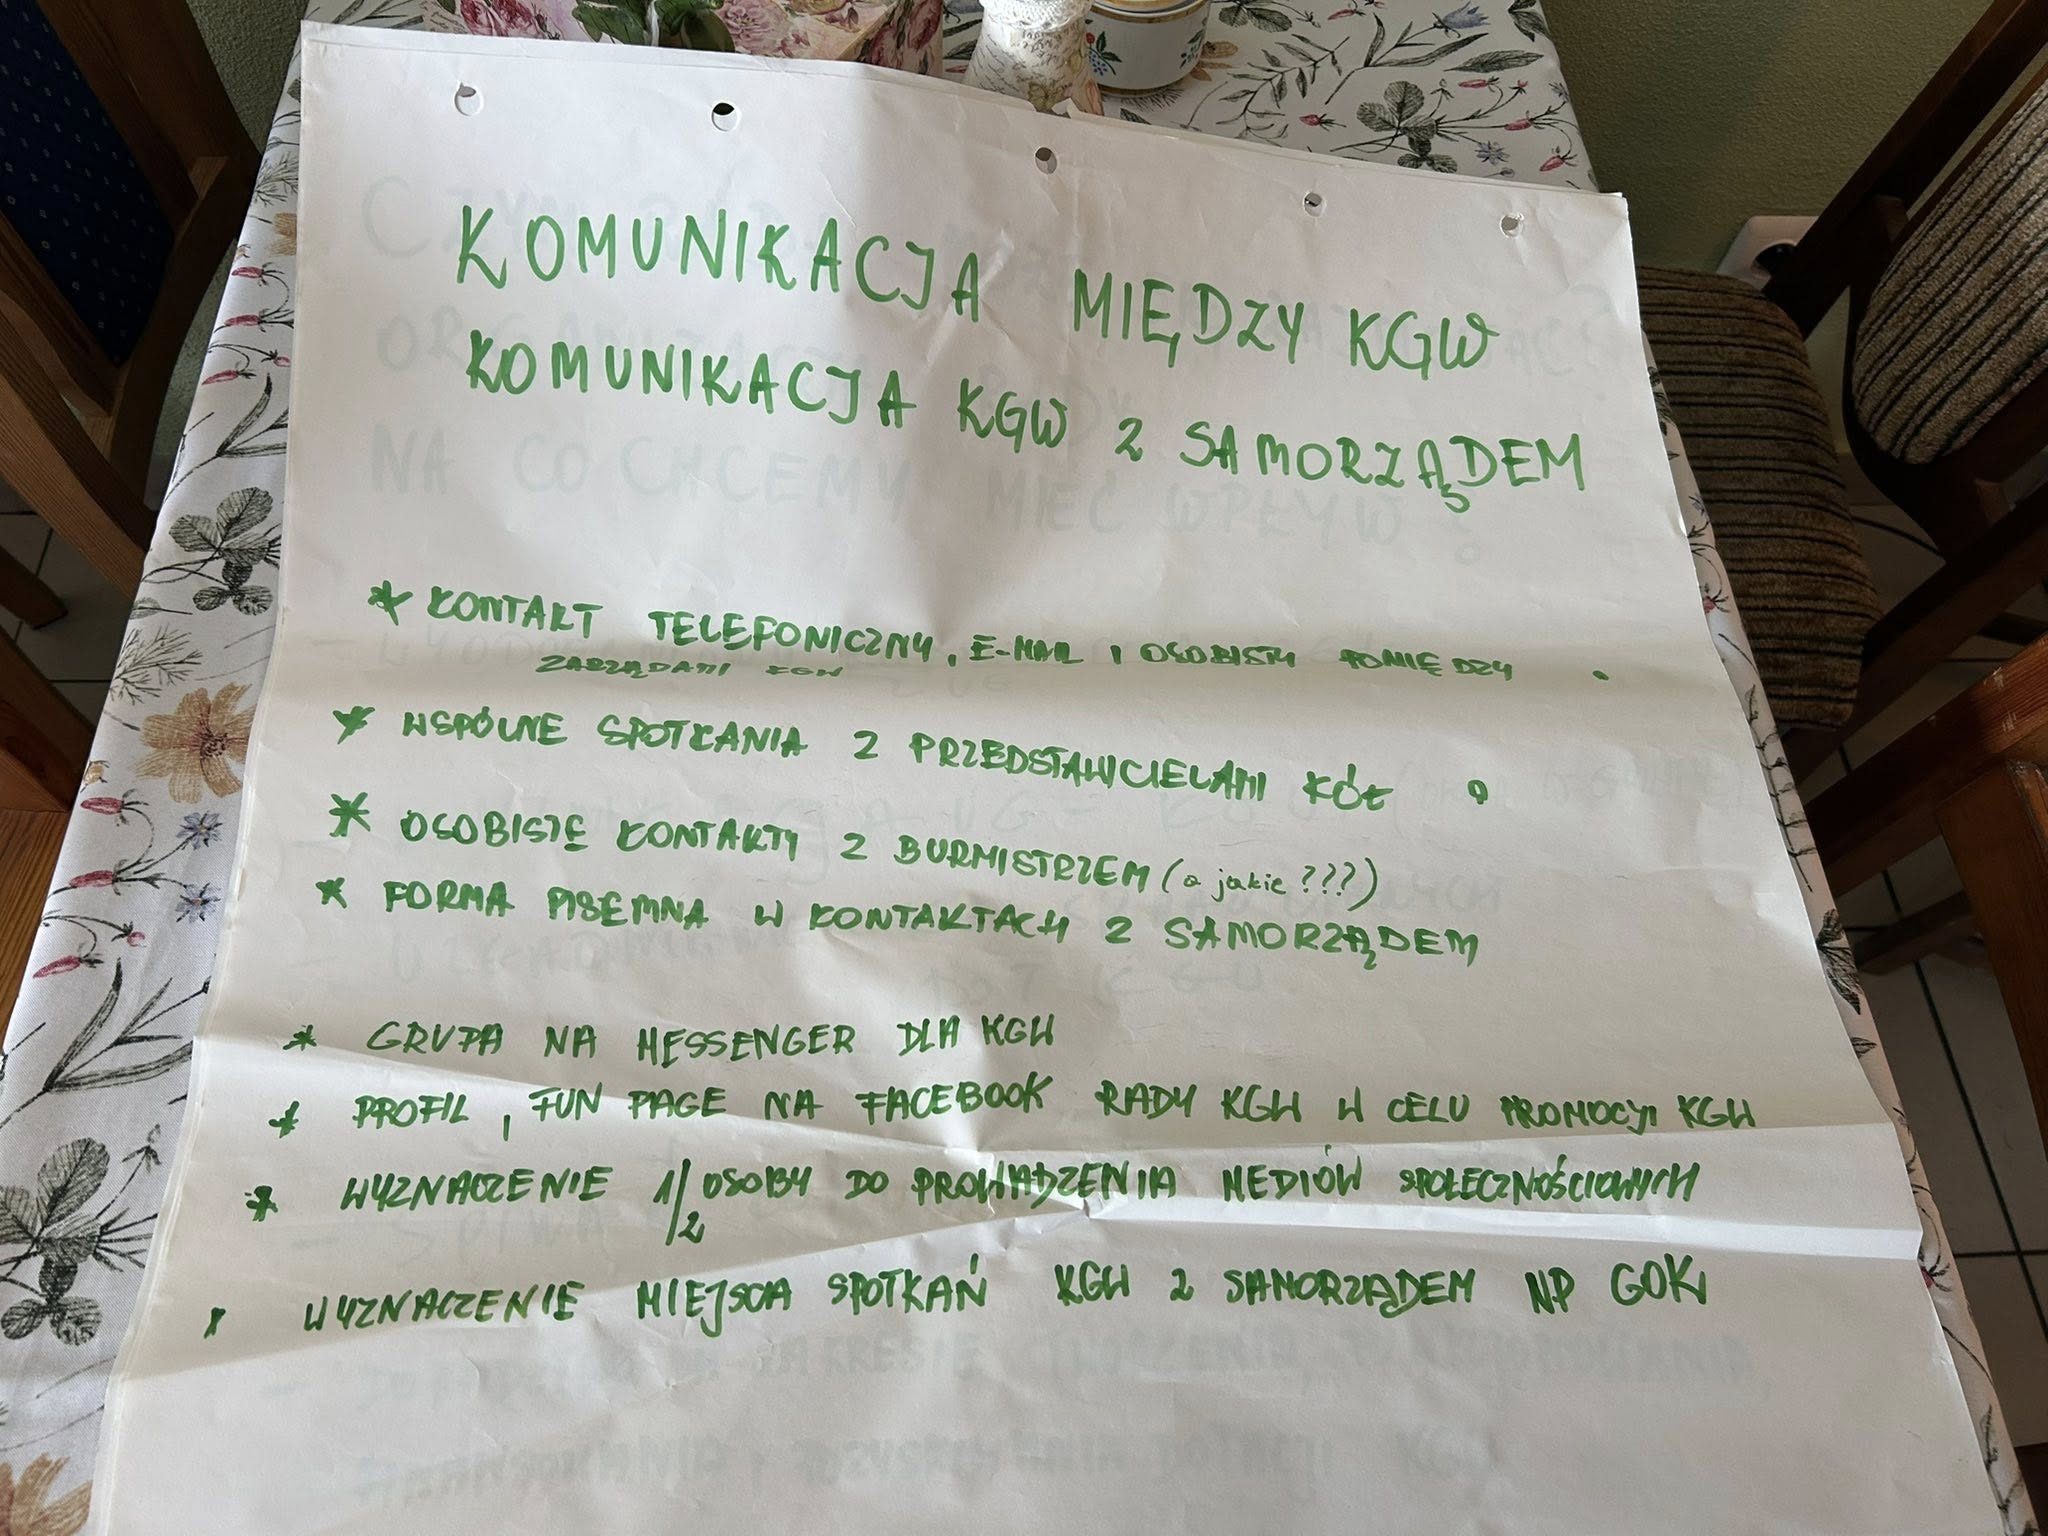 KOMUNIKACJA MIĘDZY KGW
KOMUNIKACJA KGW Z SAMORZĄDEM
* KONTAKT TELEFONICZNY, E-MAIL I OSOBISTY POMIĘDZY
ZARZĄDAMI KGW
* WSPÓLNE SPOTKANIA Z PRZEDSTAWICIELAMI KÓŁ
* OSOBISTE KONTAKTY Z BURMISTRZEM (a jakie ???)
* FORMA PISEMNA W KONTAKTACH Z SAMORZĄDEM
* GRUPA NA MESSENGER DLA KGW
* PROFIL, FUN PAGE NA FACEBOOK RADY KGW W CELU PROMOCJI KGW
* WYZNACZENIE 1/2 OSOBY DO PROWADZENIA MEDIÓW SPOŁECZNOŚCIOWYCH
* WYZNACZENIE MIEJSCA SPOTKAŃ KGW Z SAMORZĄDEM NP GOK